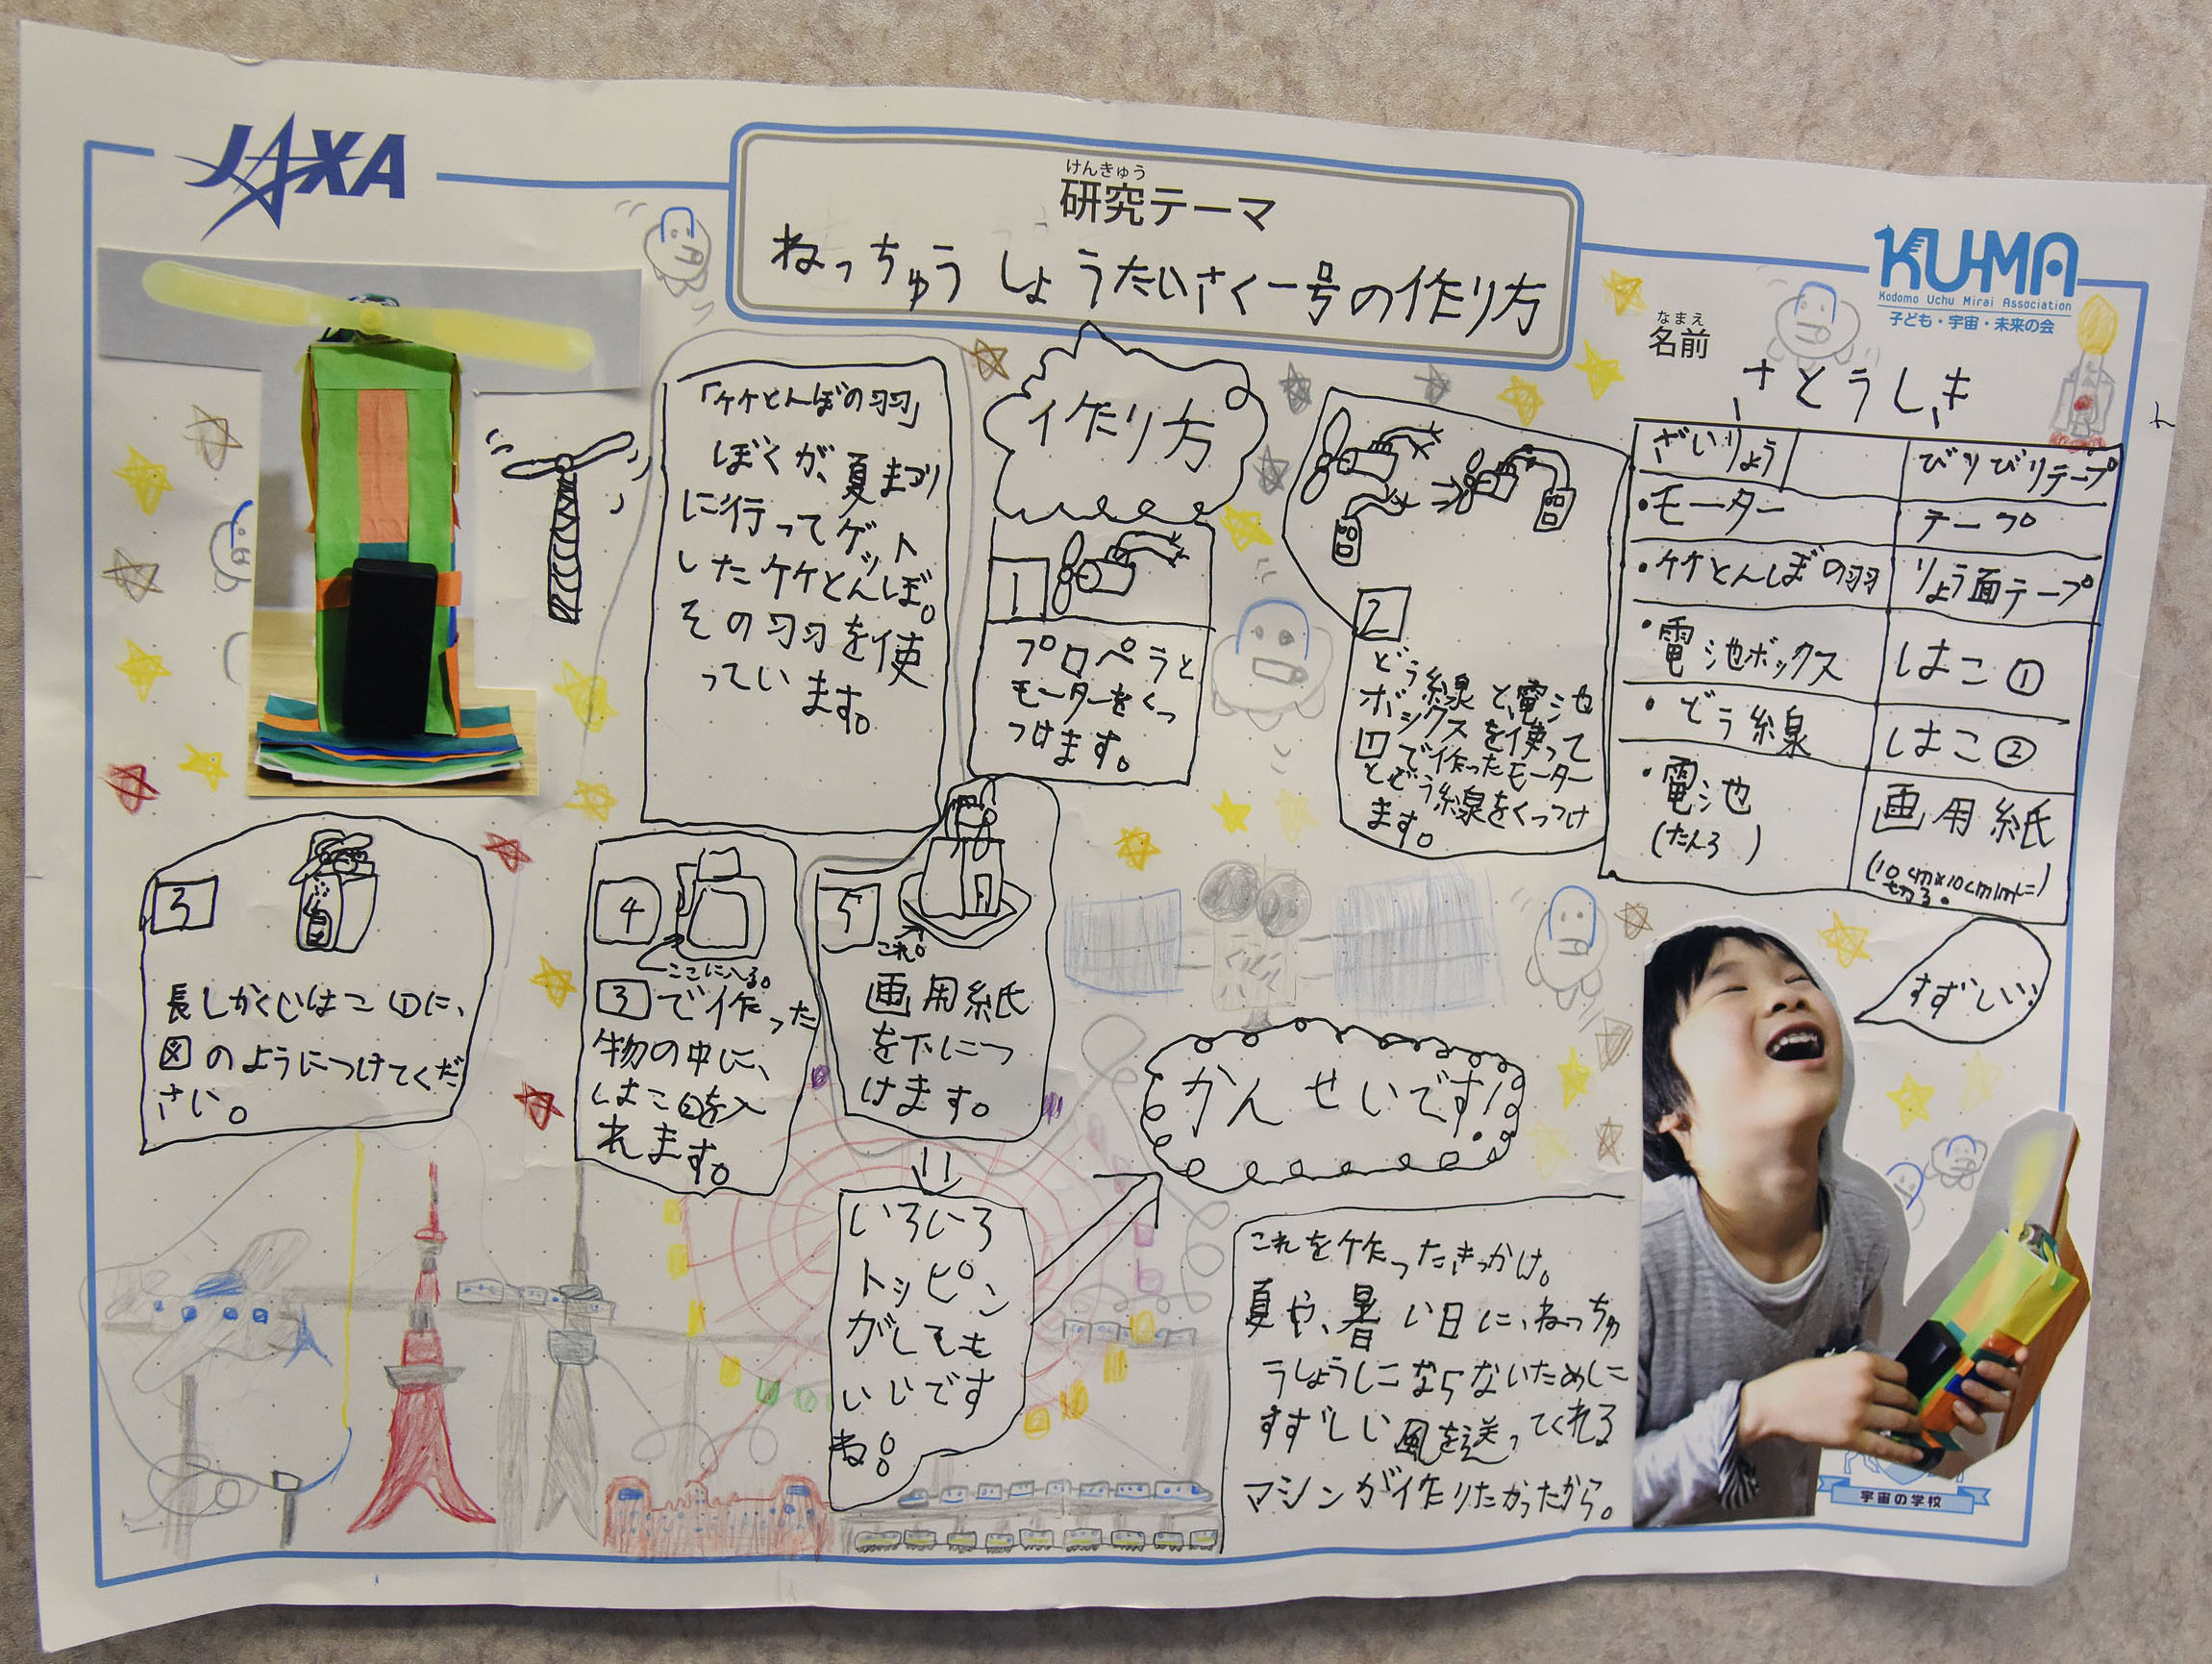 JAXA
けんきゅう
研究テーマ
ねっちゅうしょうたいさく一号の作り方
KU-MA
Kodomo Uchu Mirai Association
子ども・宇宙・未来の会
なまえ
名前
さとうしき
「竹とんぼの羽」
ぼくが、夏まつり
に行ってゲット
した竹とんぼ。
その羽を使
ってい
ます。
作り方
1
プロペラと
モーターをくっ
つけます。
2
どう線と、電池
ボックスを使って
1で作ったモーター
とどう線をくっつけ
ます。
ざいりょう
びりびりテープ
・モーター
テープ
・竹とんぼの羽
りょう面テープ
・電池ボックス
はこ①
・どう線
はこ②
・電池
(たん3)
画用紙
(10cm×10cmに)
切る。
3
長しかくいはこ①に、
図のようにつけてくだ
さい。
4
ここに入る。
3で作った
物の中に、
はこ②を入
れます。
5
これ。
画用紙
を下につ
けます。
いろいろ
トッピン
がしても
いいです
ね!
かんせいです!
すずしい!
これを作ったきっかけ。
夏や、暑い日に、ねっちゅ
うしょうにならないために
すずしい風を送ってくれる
マシンが作りたかったから。
宇宙の学校